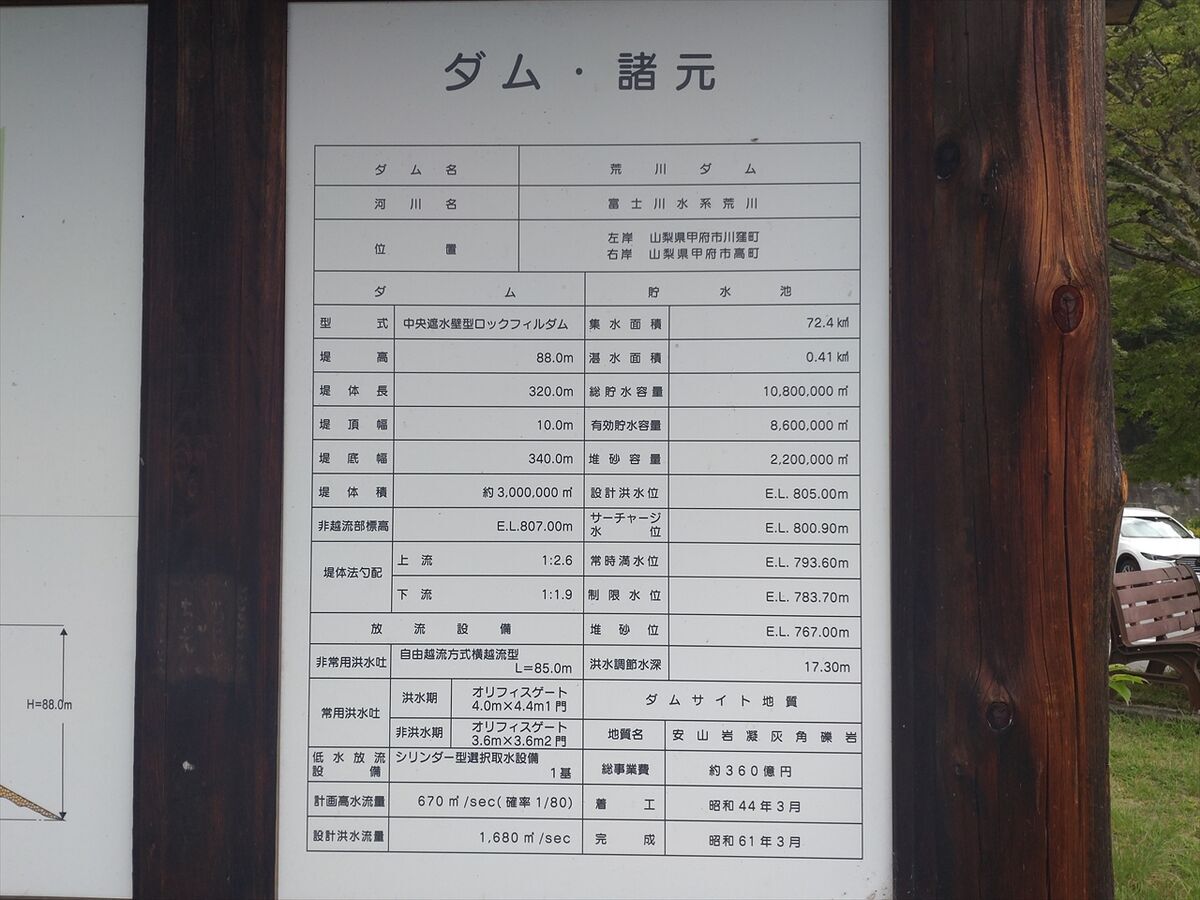 ダム・諸元
ダム名 荒川ダム
河川名 富士川水系荒川
位置 左岸 山梨県甲府市川窪町
右岸 山梨県甲府市高町
ダム 貯水池
型式 中央遮水壁型ロックフィルダム 集水面積 72.4㎢
堤高 88.0m 湛水面積 0.41㎢
堤体長 320.0m 総貯水容量 10,800,000㎥
堤頂幅 10.0m 有効貯水容量 8,600,000㎥
堤底幅 340.0m 堆砂容量 2,200,000㎥
堤体積 約3,000,000㎥ 設計洪水位 E.L. 805.00m
非越流部標高 E.L.807.00m サーチャージ水位 E.L. 800.90m
堤体法勾配 上流 1:2.6 常時満水位 E.L. 793.60m
下流 1:1.9 制限水位 E.L. 783.70m
放流設備 堆砂位 E.L. 767.00m
非常用洪水吐 自由越流方式横越流型 L=85.0m 洪水調節水深 17.30m
常用洪水吐 洪水期 オリフィスゲート 4.0m×4.4m1門 ダムサイト地質
非洪水期 オリフィスゲート 3.6m×3.6m2門 地質名 安山岩凝灰角礫岩
低水放流設備 シリンダー型選択取水設備 1基 総事業費 約360億円
計画高水流量 670㎥/sec(確率1/80) 着工 昭和44年3月
設計洪水流量 1,680㎥/sec 完成 昭和61年3月
H=88.0m